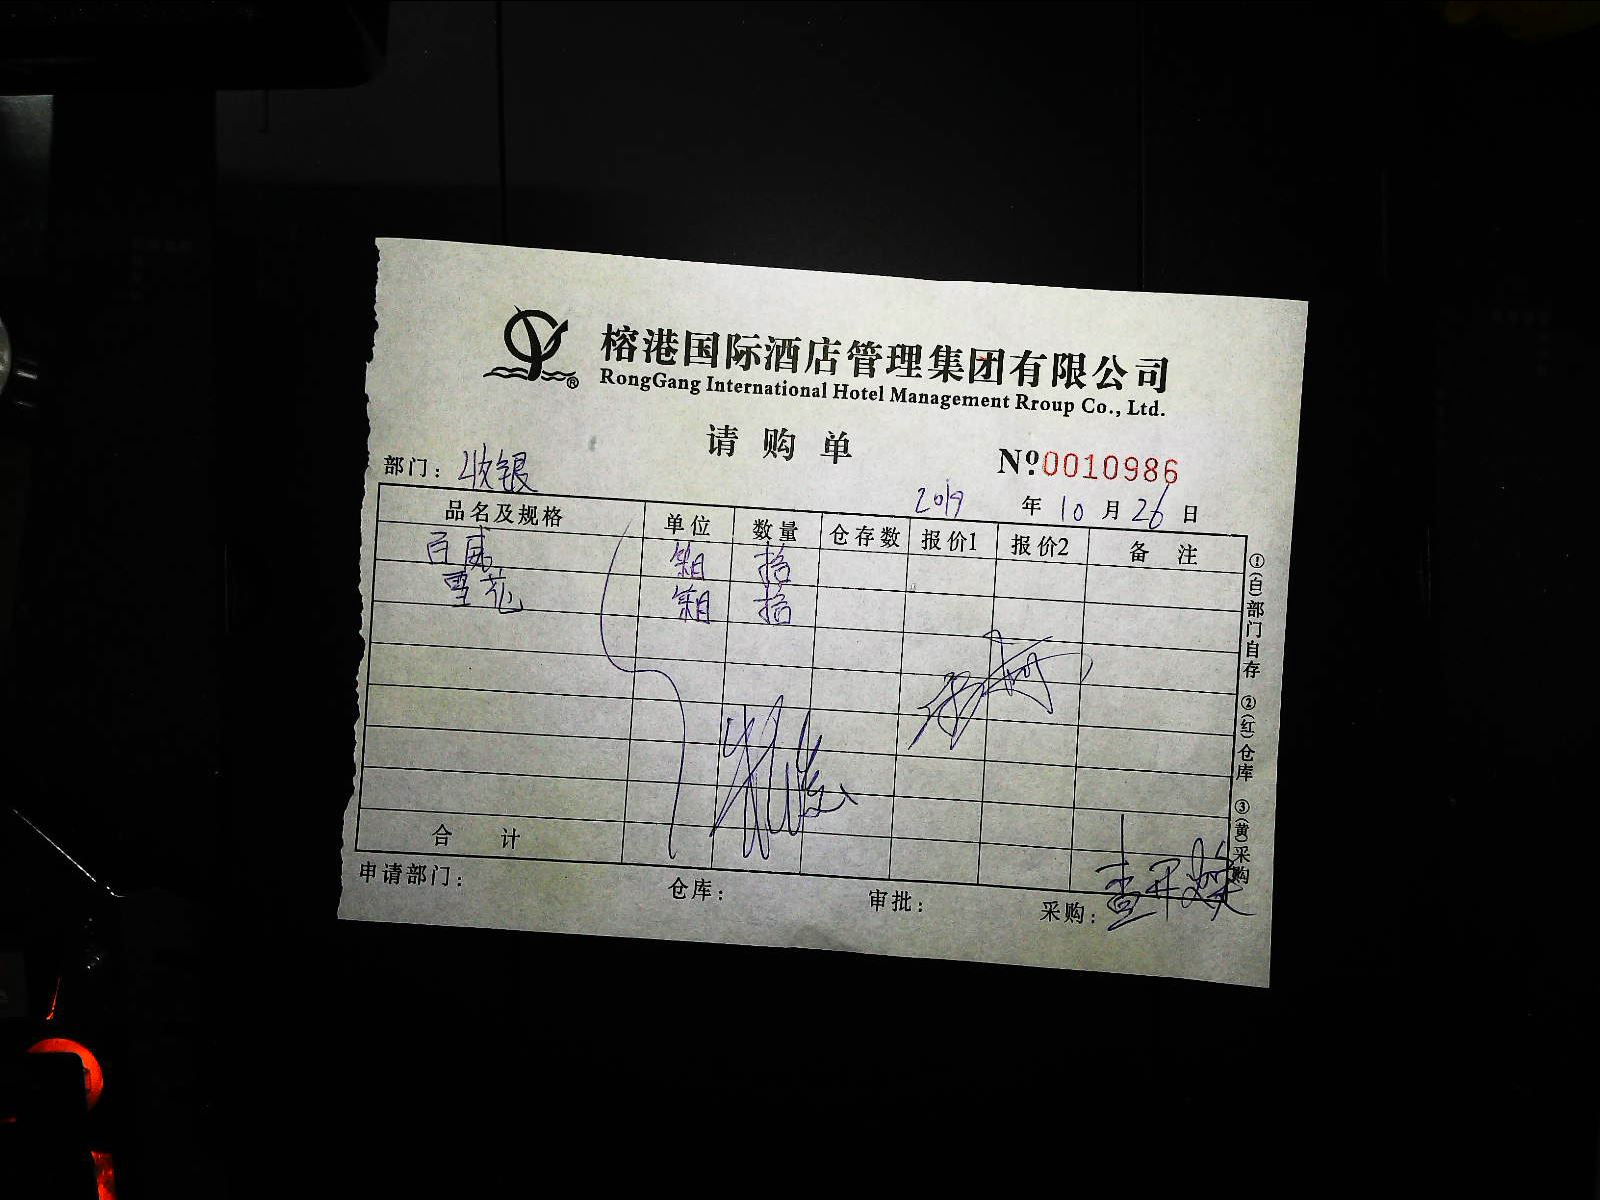 榕港国际酒店管理集团有限公司
RongGang International Hotel Management Rroup Co., Ltd.
请购单
Nº 0010986
部门：收银
2019 年 10 月 26 日
品名及规格 单位 数量 仓存数 报价1 报价2 备注
百威 箱 拾
雪花 箱 拾
合计
申请部门： 仓库： 审批： 采购：
①(白)部门自存 ②(红)仓库 ③(黄)采购